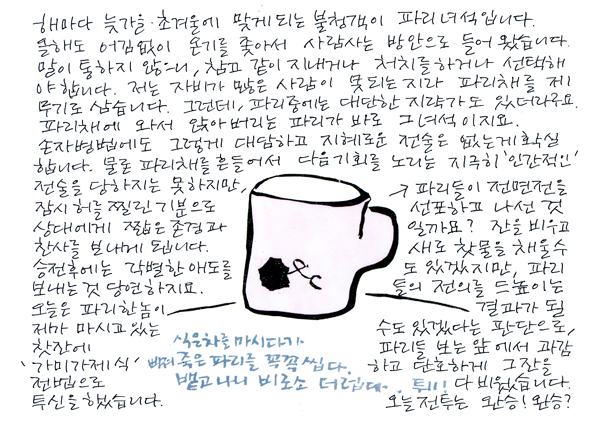 해마다 늦가을·초겨울에 맞게되는 불청객이 파리녀석입니다.
올해도 어김없이 온기를 좇아서 사람사는 방안으로 들어 왔습니다.
말이 통하지 않으니, 참고 같이 지내거나 처치를 하거나 선택해
야 합니다. 저는 자비가 많은 사람이 못되는지라 파리채를 제1
무기로 삼습니다. 그런데, 파리중에는 대단한 지략가도 있더라구요.
파리채에 와서 앉아버리는 파리가 바로 그녀석이지요.
손자병법에도 그렇게 대담하고 지혜로운 전술은 없는게 확실
합니다. 물론 파리채를 흔들어서 다음기회를 노리는 지극히 '인간적인'
전술을 당하지는 못하지만,
잠시 허를 찔린 기분으로
상대에게 짧은 존경과
찬사를 보내게 됩니다.
승전후에는 각별한 애도를
보내는것 당연하지요.
오늘은 파리한놈이
제가 마시고 있는
찻잔에
'가미가제식'
전법으로
투신을 했습니다.
→ 파리들이 전면전을
선포하고 나선 것
일까요? 잔을 비우고
새로 찻물을 채울수
도 있겠지만, 파리
들의 전의를 드높이는
결과가 될
수도 있겠다는 판단으로,
파리들 보는 앞에서 과감
하고 단호하게 그잔을
다 비웠습니다.
오늘전투는 완승! 완승?
식은차를 마시다가
빠져죽은파리를 꼭꼭씹다.
뱉고나니 비로소 더럽다. 퉤!